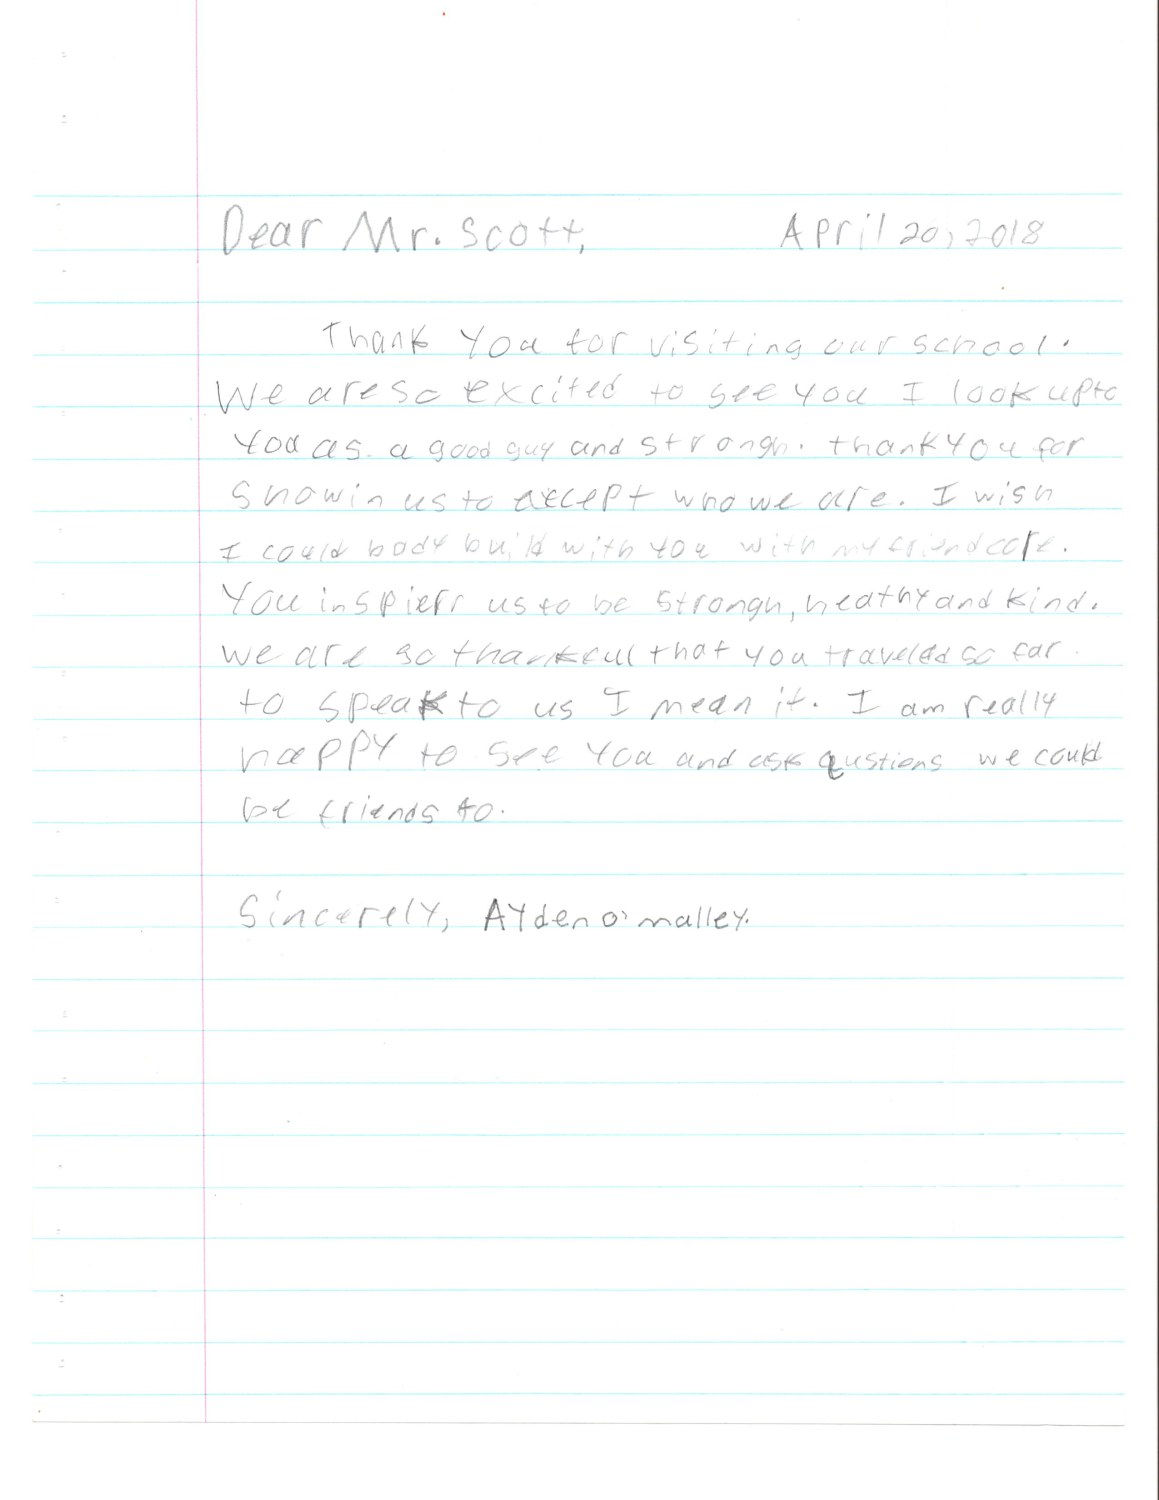 Dear Mr. Scott, April 20, 2018
Thank you for visiting our school.
We are so excited to see you I look up to
you as a good guy and strongn. thank you for
showin us to axcept who we are. I wish
I could body build with you with my friend cole.
You inspierr us to be strongn, heathy and kind.
we are so thankful that you traveled so far
to speak to us I mean it. I am really
happy to see you and ask qustions we could
be friends to.
Sincerely, Ayden o'malley.